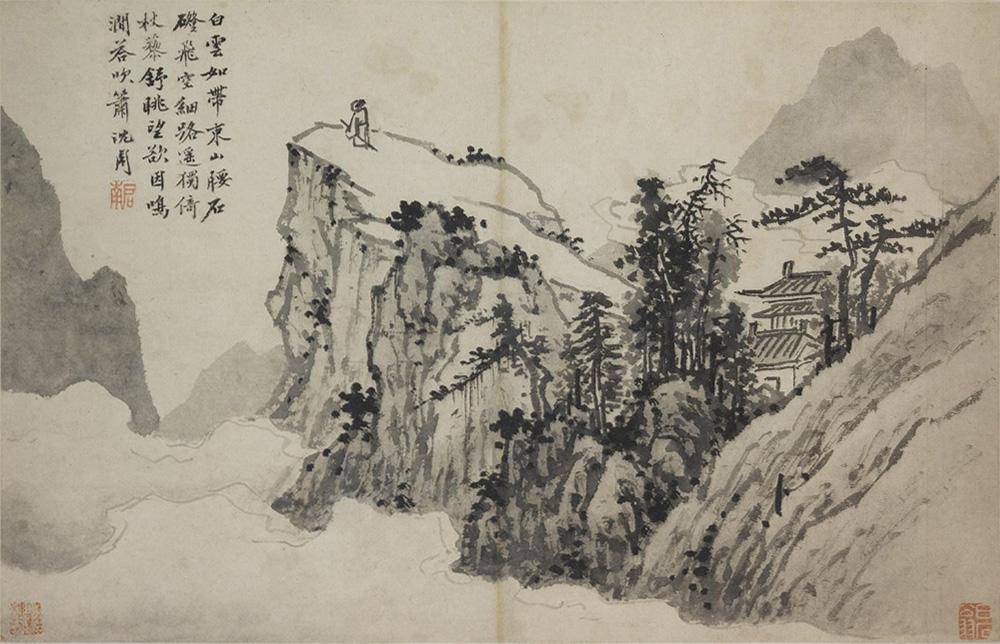 白雲如帶束山腰石
磴飛空細路遙獨倚
杖藜舒眺望欲因鳴
澗答吹簫沈周
啟南